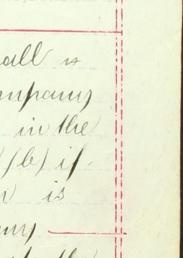 all is
ompany
in the
(b) if
is
ny
the